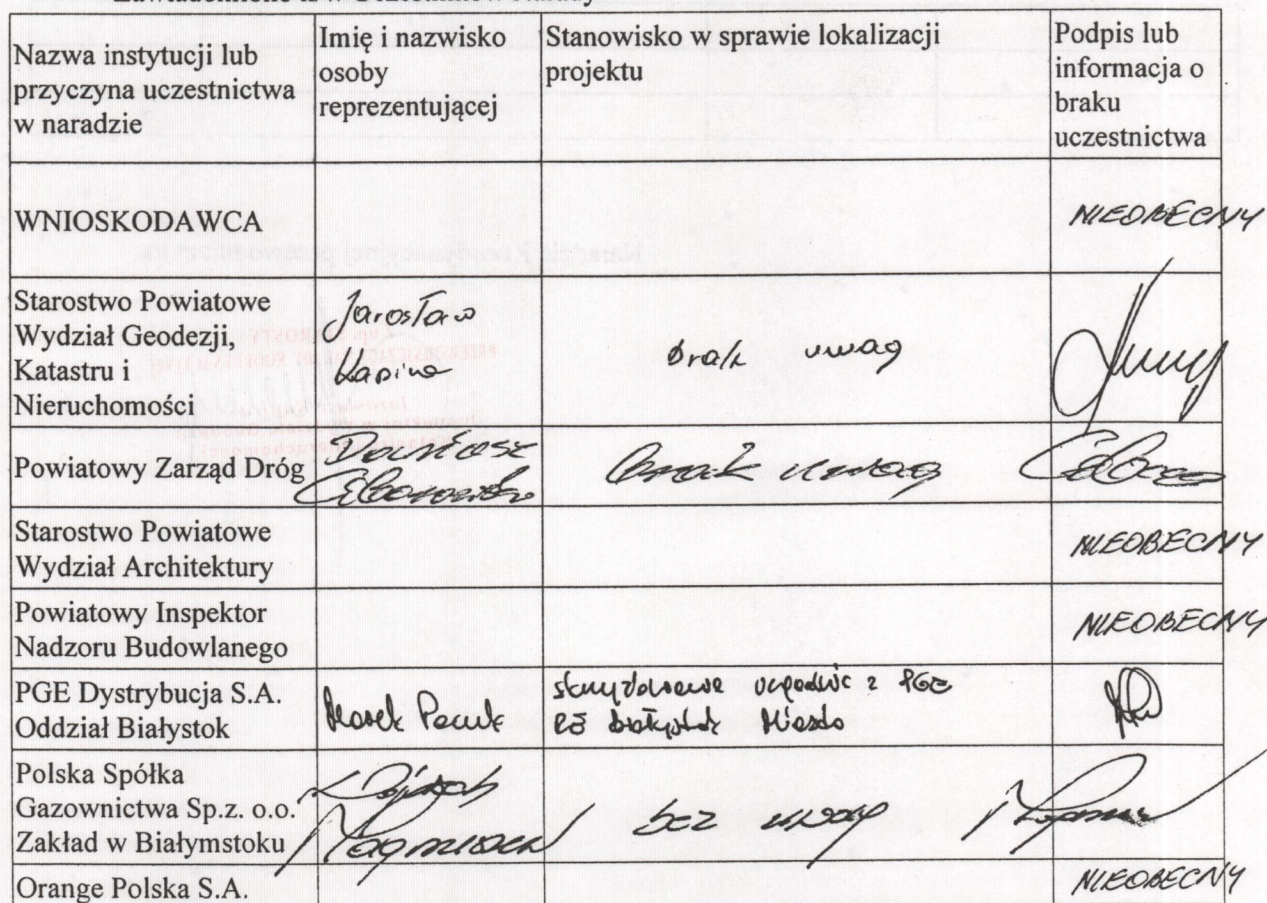 Nazwa instytucji lub
przyczyna uczestnictwa
w naradzie
Imię i nazwisko
osoby
reprezentującej
Stanowisko w sprawie lokalizacji
projektu
Podpis lub
informacja o
braku
uczestnictwa
WNIOSKODAWCA
NIEOBECNY
Starostwo Powiatowe
Wydział Geodezji,
Katastru i
Nieruchomości
Jarosław
brak uwag
Powiatowy Zarząd Dróg
brak uwag
Starostwo Powiatowe
Wydział Architektury
NIEOBECNY
Powiatowy Inspektor
Nadzoru Budowlanego
NIEOBECNY
PGE Dystrybucja S.A.
Oddział Białystok
Marek
z PGE
RE Białystok Miasto
Polska Spółka
Gazownictwa Sp.z. o.o.
Zakład w Białymstoku
bez uwag
Orange Polska S.A.
NIEOBECNY